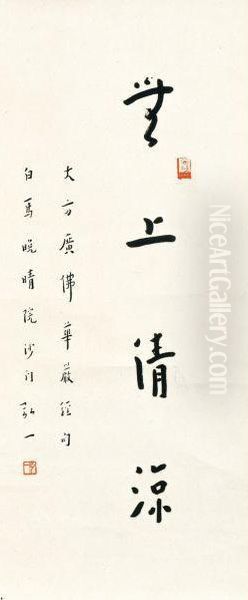 無上清涼
大方廣佛華嚴經句
白馬晚晴院沙門弘一
NiceArtGallery.com